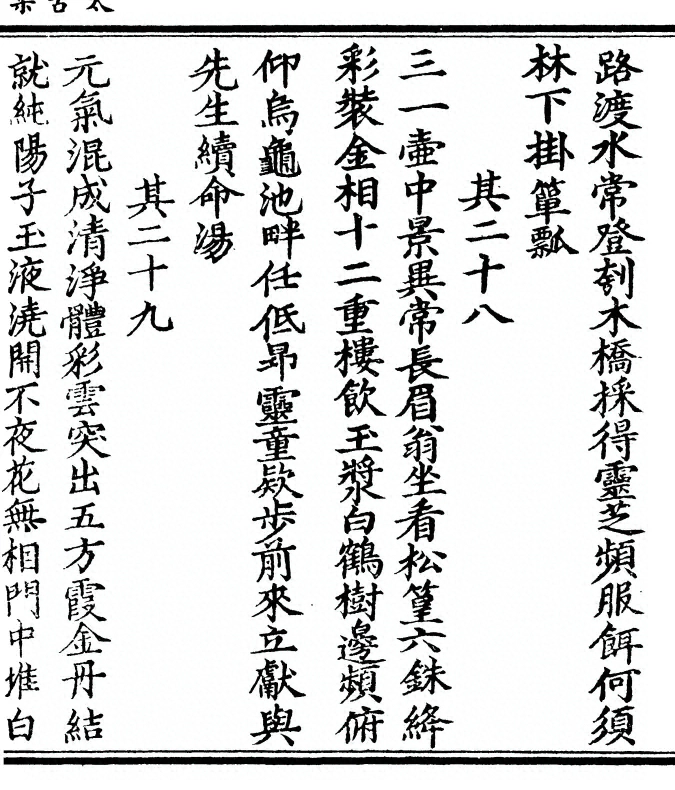 路渡水常登刳木橋採得靈芝頻服餌何須
林下掛簞瓢
其二十八
三一壷中景異常長眉翁坐看松篁六銖絳
彩裝金相十二重樓飲玉漿白鶴樹邊頻俯
仰烏龜池畔任低昂靈童欵步前來立獻與
先生續命湯
其二十九
元氣混成清淨體彩雲突出五方霞金丹結
就純陽子玉液澆開不夜花無相門中堆白